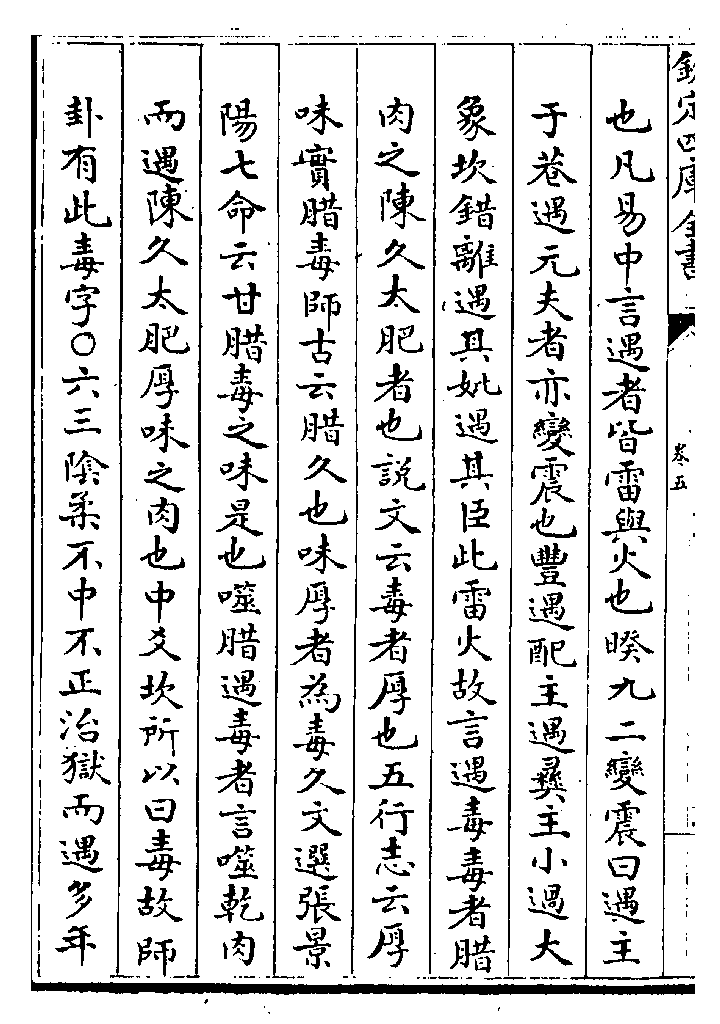 欽定四庫全書
卷五
也凡易中言遇者皆雷與火也睽九二變震曰遇主
于巷遇元夫者亦變震也豐遇配主遇彞主小過大
象坎錯離遇其妣遇其臣此雷火故言遇毒毒者腊
肉之陳久太肥者也説文云毒者厚也五行志云厚
味實腊毒師古云腊久也味厚者為毒久文選張景
陽七命云甘腊毒之味是也噬腊遇毒者言噬乾肉
而遇陳久太肥厚味之肉也中爻坎所以曰毒故師
卦有此毒字〇六三陰柔不中不正治獄而遇多年